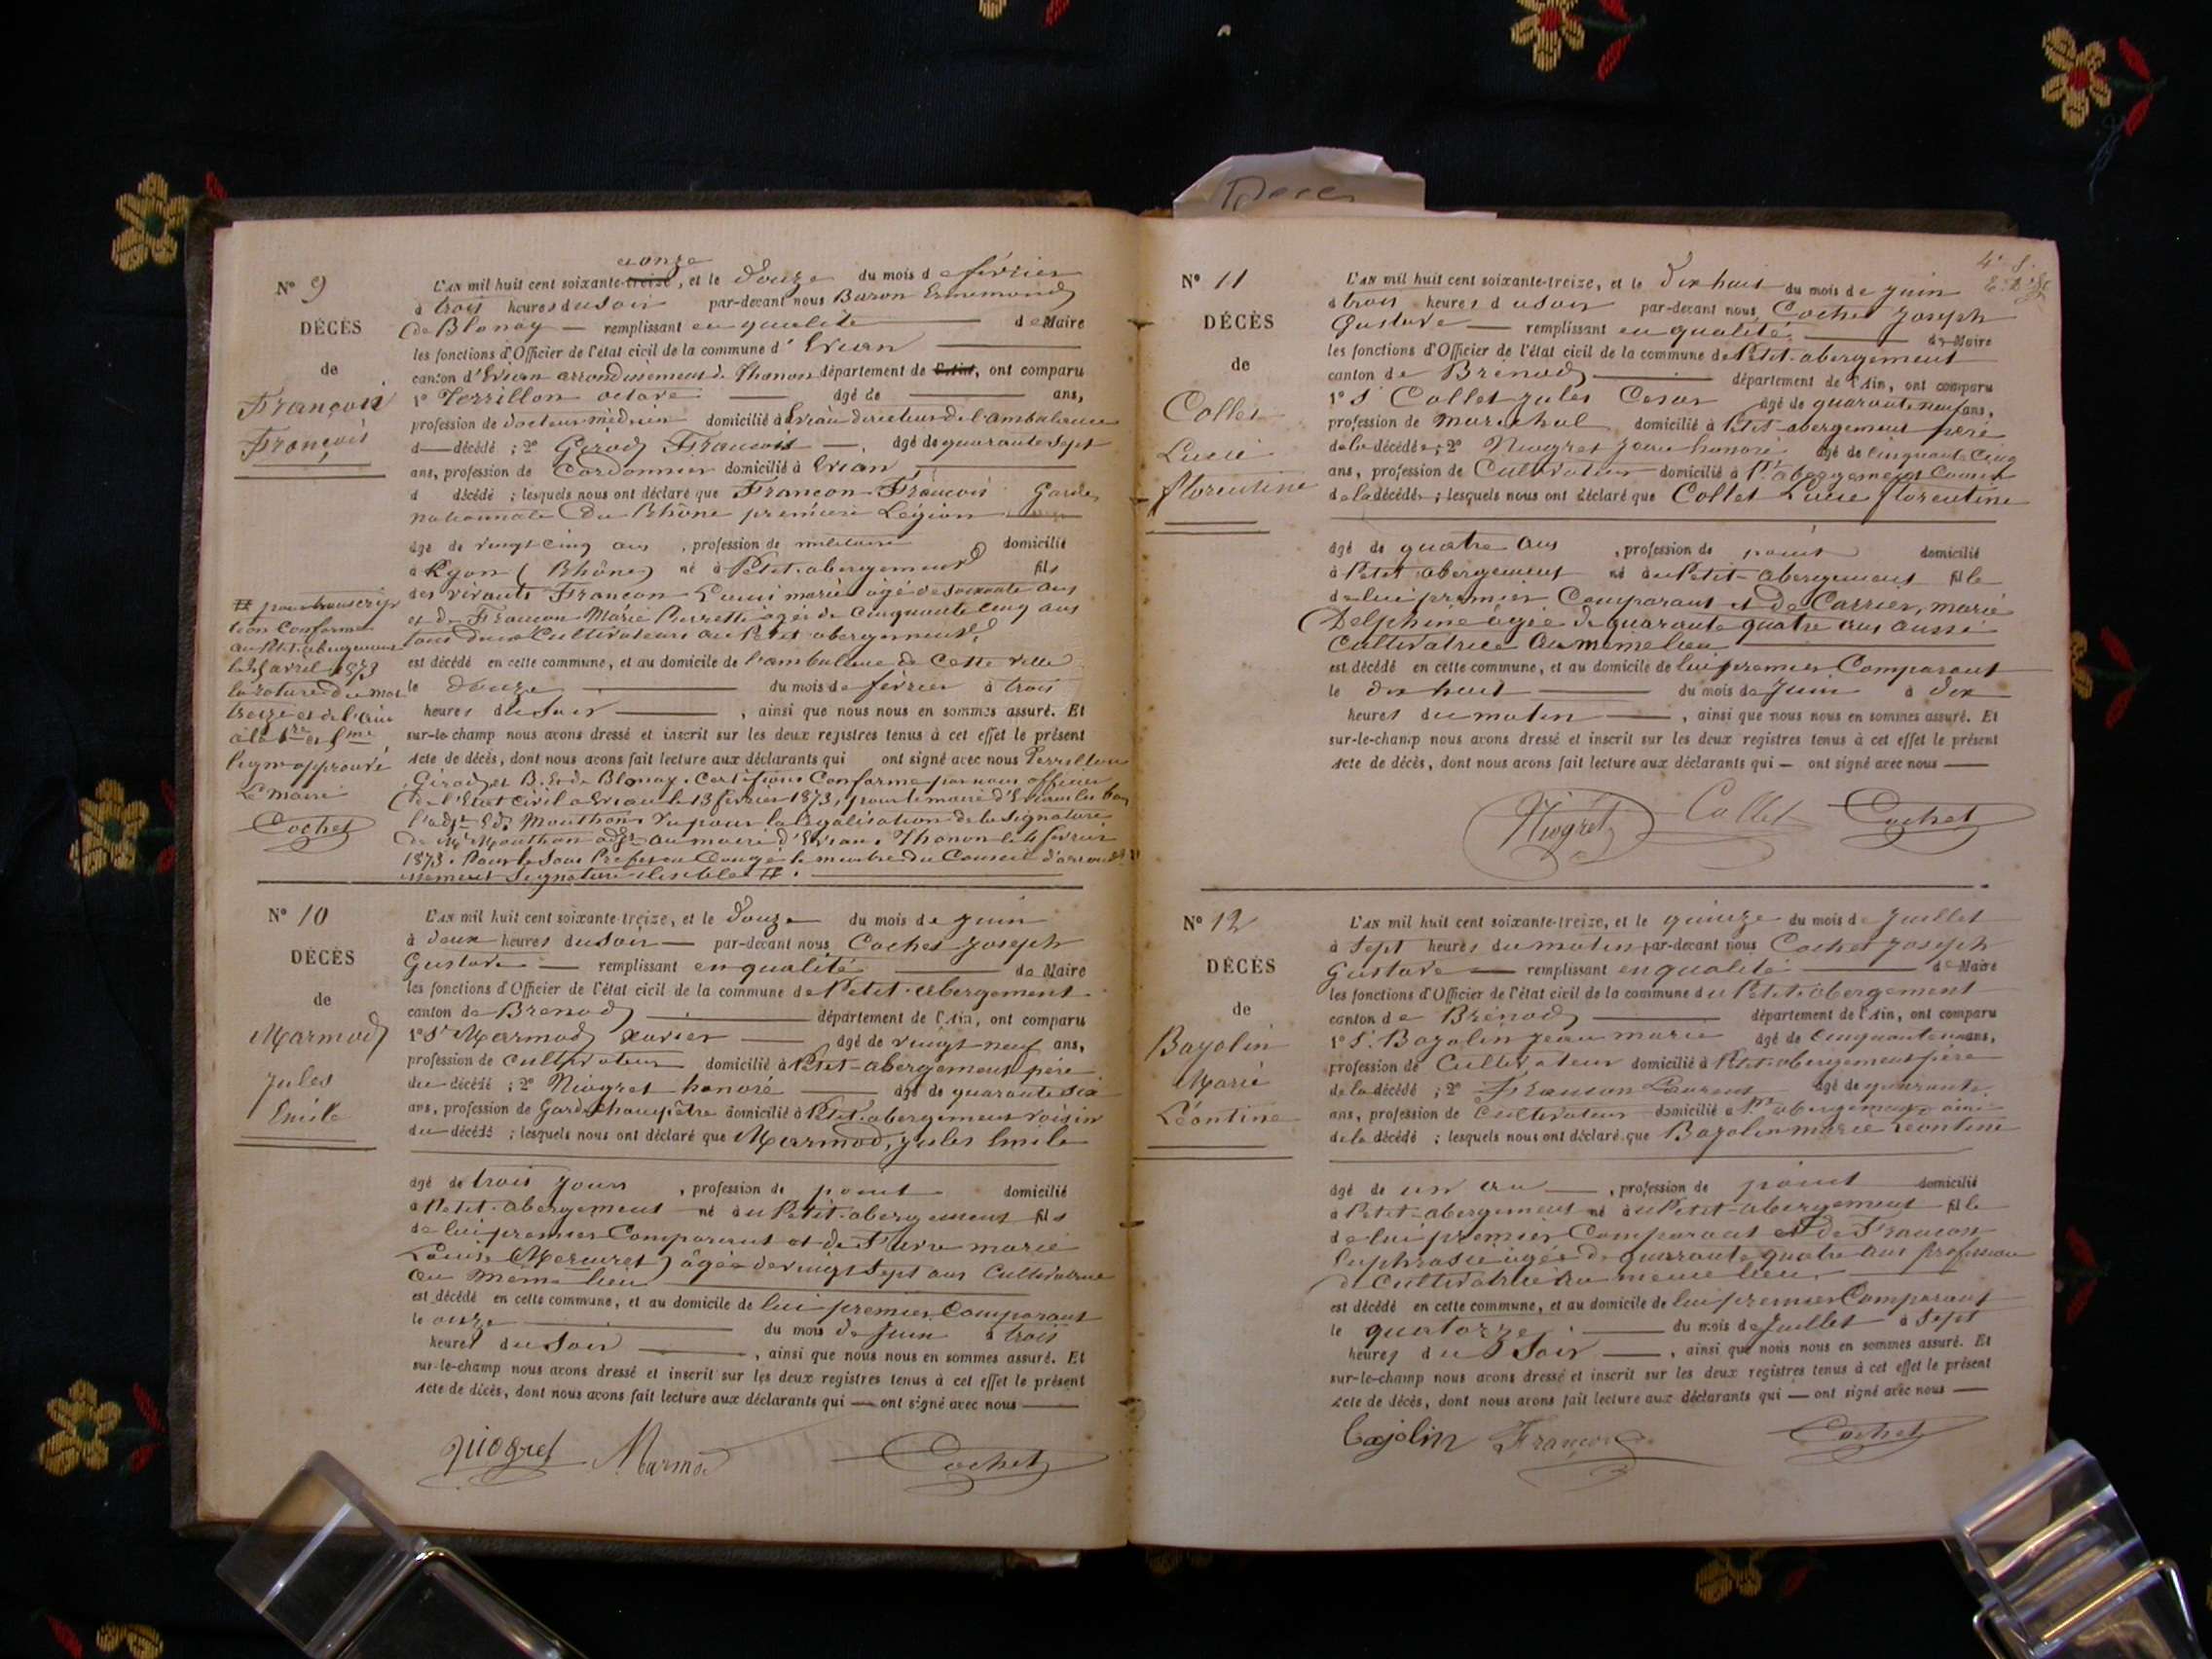 Deces
N° 9
DÉCÈS
de
Françon
François
et onze
L'AN mil huit cent soixante-treize, et le Douze du mois de février
à trois heures du Soir par-devant nous Baron Ennemond
de Blonay — remplissant en qualité de Maire
les fonctions d'Officier de l'état civil de la commune d'Evian
canton d'Evian arrondissement de Thonon département de, ont comparu
1° Verrillon octave — âgé de — ans,
profession de docteur médecin domicilié à Evian directeur de l'ambulance
d— décédé ; 2° Girod François — âgé de quarante Sept
ans, profession de Cordonnier domicilié à Evian
d décédé ; lesquels nous ont déclaré que Françon François Garde
nationale Du Rhône première Légion
âgé de vingt Cinq ans, profession de militaire domicilié
à Lyon (Rhône) né à Petit-abergement fils
des vivants Françon Louis marie âgé de soixante ans
et de Françon Marie Pierrette âgée de Cinquante cinq ans
tous deux Cultivateurs au Petit abergement
est décédé en cette commune, et au domicile de l'ambulance de Cette ville
le Douze du mois de février à trois
heures du Soir, ainsi que nous nous en sommes assuré. Et
sur-le-champ nous avons dressé et inscrit sur les deux registres tenus à cet effet le présent
acte de décès, dont nous avons fait lecture aux déclarants qui ont signé avec nous Verrillon
Girod et B. E. de Blonay. Certifions Conforme par nous officier
de l'Etat civil à Evian le 13 février 1873, pour le maire d'Evian les bains
l'adjt Ed. Mouthon. Vu pour la légalisation de la Signature
de Mr Mouthon adjt au maire d'Evian. Thonon le 14 février
1873. Pour le Sous Préfet en Congé le membre du Conseil d'arrond-
issement Signature illisible #.
# pour transcrip
tion Conforme
au Petit-abergement
le avril 1873
la rature du mot
treize et de l'Ain
à la 1re et 5me
ligne approuvé
Le Maire
Cochet
N° 10
DÉCÈS
de
Marmod
Jules
Emile
L'AN mil huit cent soixante-treize, et le Douze du mois de Juin
à deux heures du Soir — par-devant nous Cochet Joseph
Gustave — remplissant en qualité de Maire
les fonctions d'Officier de l'état civil de la commune de Petit-abergement
canton de Brenod département de l'Ain, ont comparu
1° Sr Marmod Xavier — âgé de vingt neuf ans,
profession de Cultivateur domicilié à Petit-abergement père
du décédé ; 2° Niogret honoré — âgé de quarante Six
ans, profession de Garde champêtre domicilié à Petit-abergement voisin
du décédé ; lesquels nous ont déclaré que Marmod, Jules Emile
âgé de trois Jours, profession de point domicilié
à Petit-abergement né au Petit-abergement fils
de lui premier Comparant et de marie
Louise (Mercuret) âgée de vingt Sept ans Cultivatrice
au Même lieu
est décédé en cette commune, et au domicile de lui premier Comparant
le onze du mois de Juin à trois
heures du Soir, ainsi que nous nous en sommes assuré. Et
sur-le-champ nous avons dressé et inscrit sur les deux registres tenus à cet effet le présent
acte de décès, dont nous avons fait lecture aux déclarants qui — ont signé avec nous —
Niogret Marmod Cochet
4e f.
N° 11
DÉCÈS
de
Collet
Lucie
florentine
L'AN mil huit cent soixante-treize, et le Dix huit du mois de Juin
à trois heures du Soir par-devant nous Cochet Joseph
Gustave — remplissant en qualité de Maire
les fonctions d'Officier de l'état civil de la commune de Petit-abergement
canton de Brenod département de l'Ain, ont comparu
1° Sr Collet Jules Cesar âgé de quarante neuf ans,
profession de Maréchal domicilié à Petit-abergement père
de la décédée ; 2° Niogret Jean honoré âgé de Cinquante Cinq
ans, profession de Cultivateur domicilié à Pt abergement Cousin
de la décédée ; lesquels nous ont déclaré que Collet Lucie florentine
âgé de quatre ans, profession de point domicilié
à Petit abergement né au Petit-abergement fille
de lui premier Comparant et de Carrier, marie
Delphine âgée de quarante quatre ans aussi
Cultivatrice au même lieu
est décédé en cette commune, et au domicile de lui premier Comparant
le dix huit du mois de Juin à dix
heures du matin —, ainsi que nous nous en sommes assuré. Et
sur-le-champ nous avons dressé et inscrit sur les deux registres tenus à cet effet le présent
acte de décès, dont nous avons fait lecture aux déclarants qui — ont signé avec nous —
Niogret Collet Cochet
N° 12
DÉCÈS
de
Bazolin
Marie
Léontine
L'AN mil huit cent soixante-treize, et le quinze du mois de Juillet
à Sept heures du matin par-devant nous Cochet Joseph
Gustave — remplissant en qualité de Maire
les fonctions d'Officier de l'état civil de la commune du Petit-abergement
canton de Brénod département de l'Ain, ont comparu
1° S. Bazolin Jean marie âgé de Cinquante ans,
profession de Cultivateur domicilié à Petit-abergement père
de la décédé ; 2° Françon Laurent âgé de quarante
ans, profession de Cultivateur domicilié à Pt abergement ami
de la décédé ; lesquels nous ont déclaré que Bazolin marie Léontine
âgé de un an —, profession de point domicilié
à Petit-abergement né au Petit-abergement fille
de lui premier Comparant et de Françon
Euphrasie âgée de quarante quatre ans profession
de Cultivatrice au même lieu
est décédé en cette commune, et au domicile de lui premier Comparant
le quatorze du mois de Juillet à Sept
heures du Soir —, ainsi que nous nous en sommes assuré. Et
sur-le-champ nous avons dressé et inscrit sur les deux registres tenus à cet effet le présent
acte de décès, dont nous avons fait lecture aux déclarants qui — ont signé avec nous —
Bajolin Françon Cochet